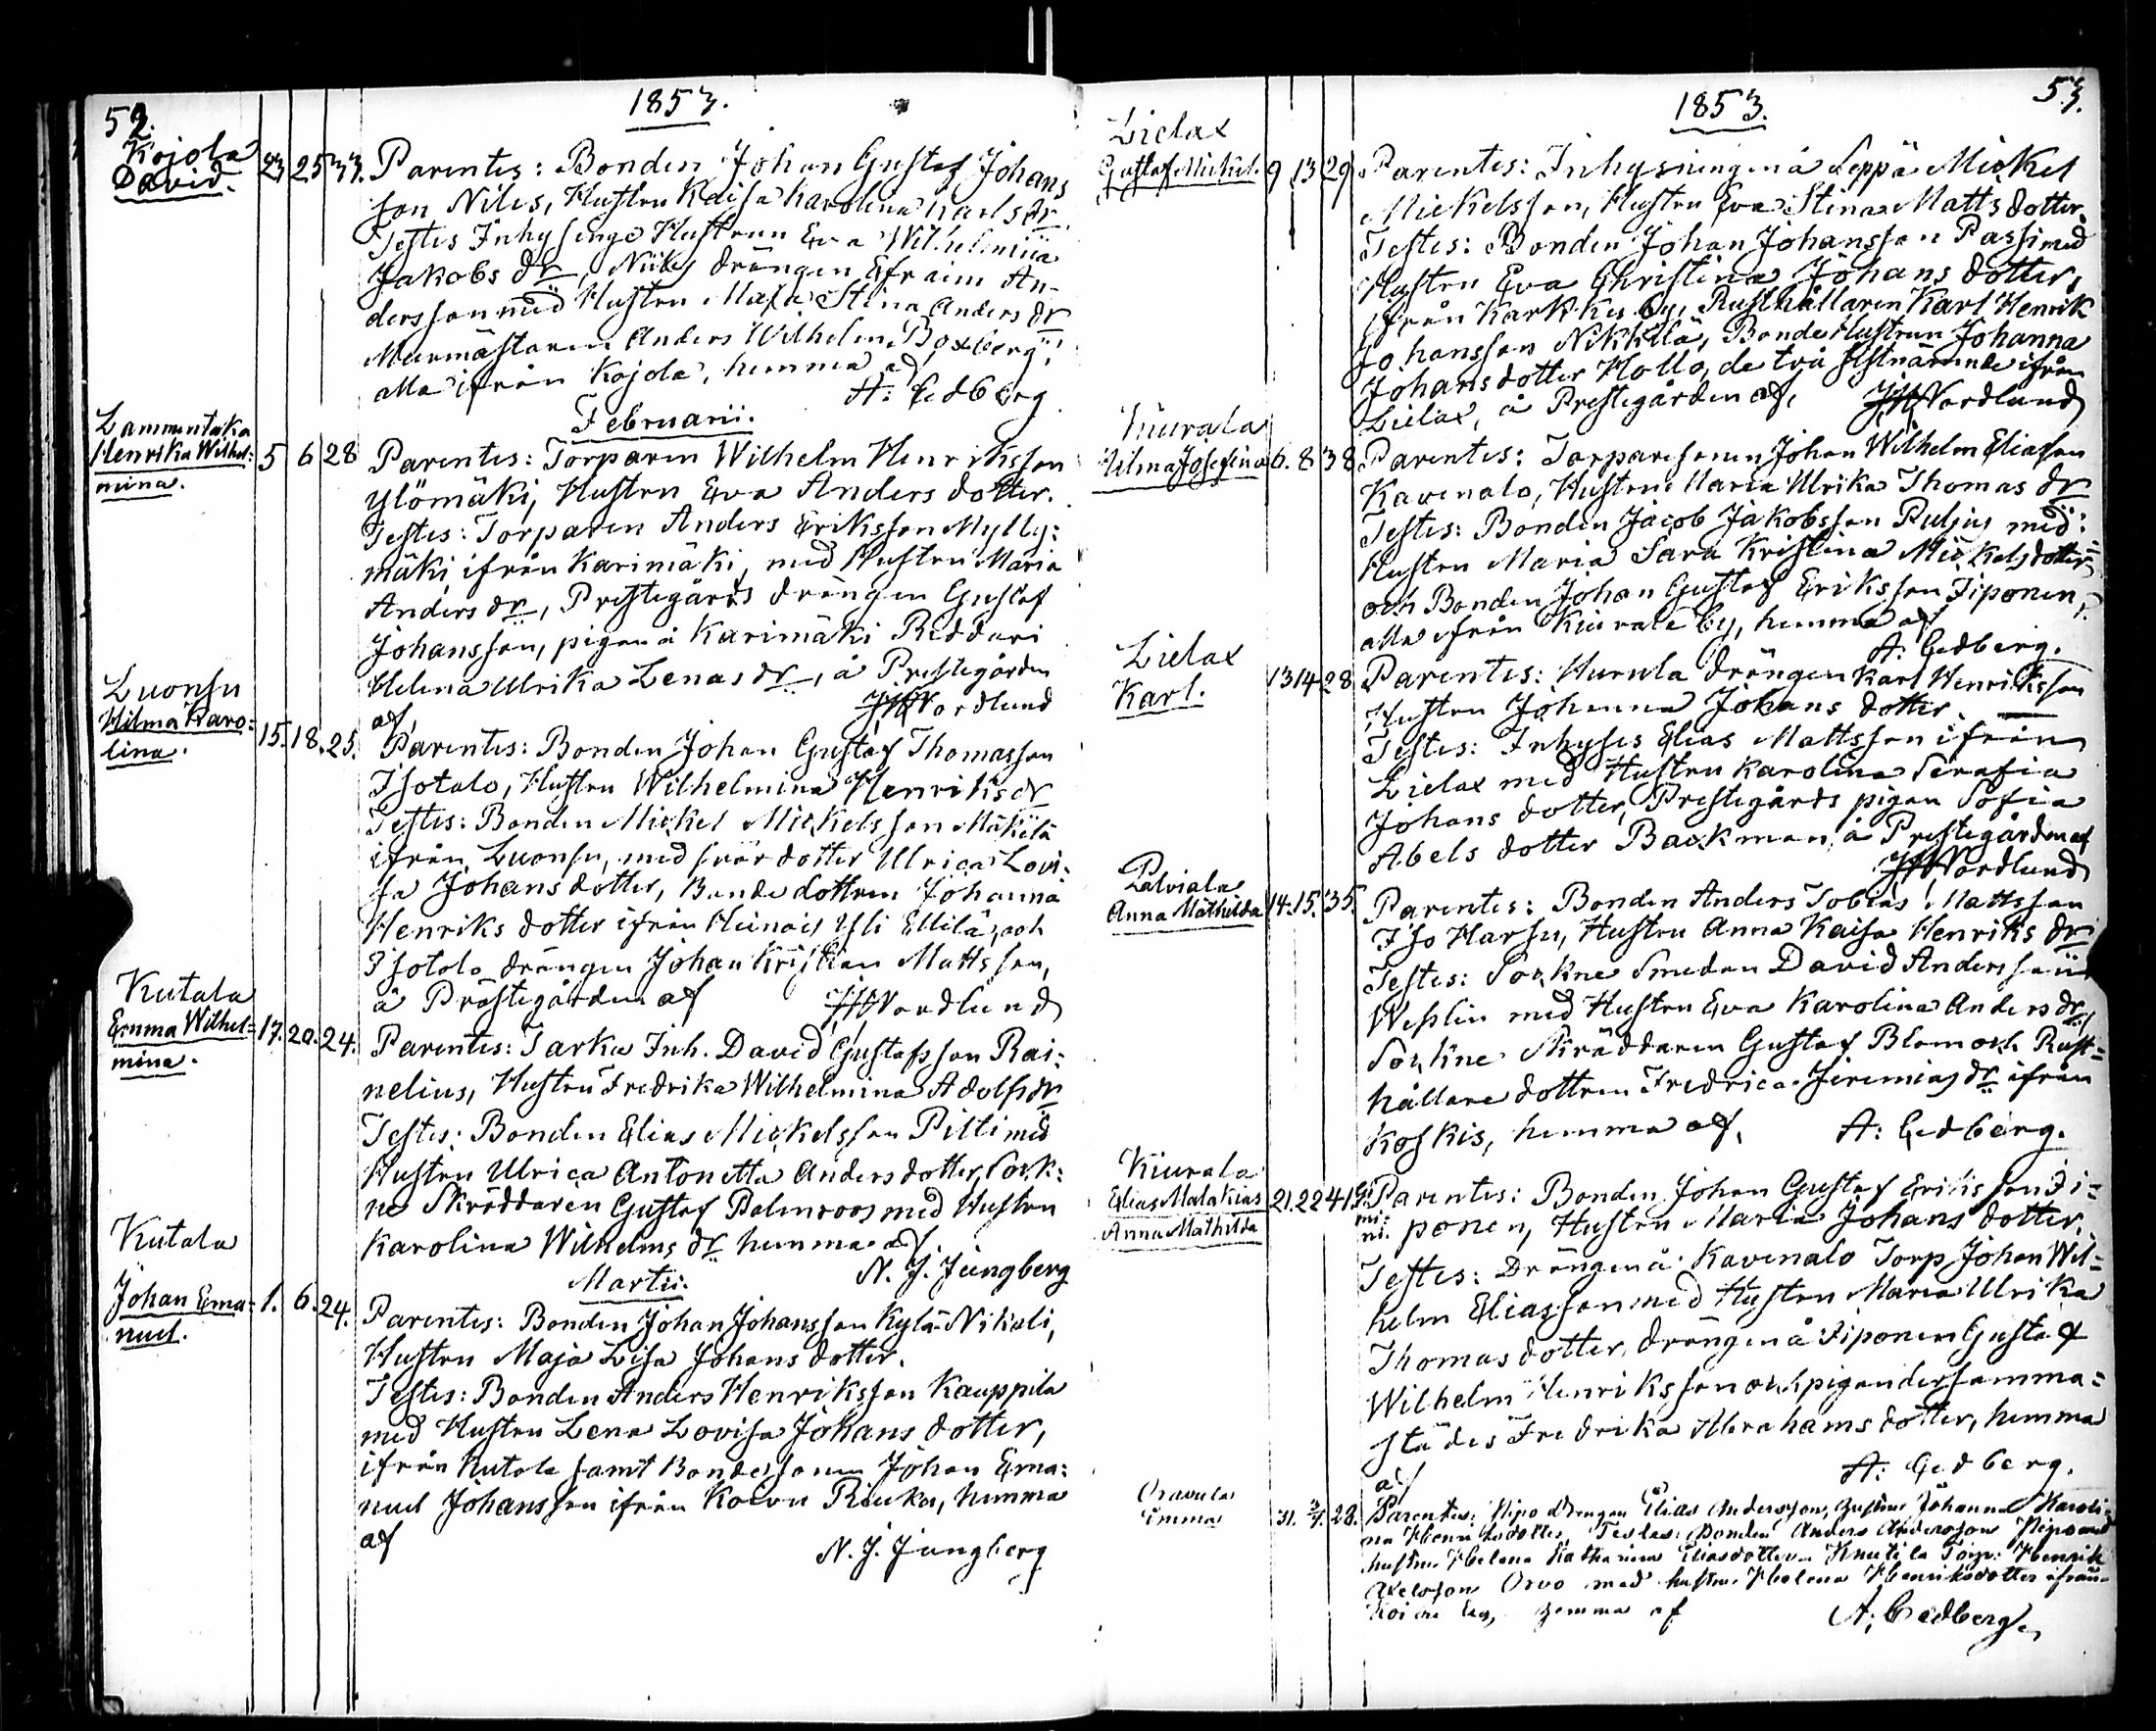 52.
1853.
Kojola
David.
23 25 33.
Parentes: Bonden Johan Gustaf Johans
son Niles, Hustru Kaisa Karolina Karlsdr
Testes Inhysinge Hustrun Eva Wilhelmina
Jakobs dr, Niiles drängen Efraim An-
dersson med Hustru Maja Stina Anders dr
Murmästaren Anders Wilhelm Boxberg,
alla ifrån Kojola, hemma af
A: Gedberg
Februarii.
Lammentaka
Henrika Wilhel:
mina.
5 6 28
Parentes: Torparen Wilhelm Henriksson
Ylömäki, Hustru Eva Anders dotter.
Testes: Torparen Anders Eriksson Mylly:
mäki ifrån Karimäki, med Hustru Maria
Anders dr, Prestegårds drängen Gustaf
Johansson, pigan å Karimäki Riddari
Helena Ulrika Lenas dr, å Prestegården
af, JHNordlund
Luonsu
Hilma Karo:
lina.
15. 18. 25.
Parentes: Bonden Johan Gustaf Thomasson
Isotalo, Hustru Wilhelmina Henriksdr
Testes: Bonden Mickel Mickelsson Mäkilä
ifrån Luonsu, med svärdotter Ulrica Lovi-
sa Johans dotter, Bonde dottren Johanna
Henriks dotter ifrån Heinois Yli Ellilä, och
Isotalo drängen Johan Kristian Mattsson,
å Prästegården af JHNordlund
Kutala
Emma Wilhel=
mina.
17. 20. 24.
Parentes: Tarka Inh. David Gustafsson Rai:
nelius, Hustru Fredrika Wilhelmina Adolfsdr
Testes: Bonden Elias Mickelsson Pilti med
Hustru Ulrica Antonetta Anders dotter, Sock:
ne Skräddaren Gustaf Palmroos med Hustru
Karolina Wilhelms dr hemma af
N. J. Jungberg
Martii.
Kutala
Johan Ema:
nuel.
1. 6. 24.
Parentes: Bonden Johan Johansson Kylä-Nikali,
Hustru Maja Lisa Johans dotter.
Testes: Bonden Anders Henriksson Kauppila
med Hustru Lena Lovisa Johans dotter,
ifrån Kutala samt Bondesonen Johan Ema:
nuel Johansson ifrån Koivu Riuka, hemma
af
N. J. Jungberg
53.
1853.
Lielax
Gustaf Mickel.
9 13 29
Parentes: Inhysningen å Leppä Mickel
Mickelsson, Hustru Eva Stina Matts dotter.
Testes: Bonden Johan Johansson Passi med
Hustru Eva Christina Johans dotter,
ifrån Karkkis by, Rusthållaren Karl Henrik
Johansson Nikkilä, Bonde Hustrun Johanna
Johans dotter Hollo, de två sistnämnde ifrån
Lielax, å Prestegården af, JHNordlund
Kiurala
Hilma Josefina
6. 8 38
Parentes: Torparesonen Johan Wilhelm Eliasson
Kavenalo, Hustru Maria Ulrika Thomas dr
Testes: Bonden Jacob Jakobsson Puljus med
Hustru Maria Sara Kristina Mickels dotter
och Bonden Johan Gustaf Eriksson Fiponen,
alla ifrån Kiurala by, hemma af
A: Gedberg.
Lielax
Karl.
13 14 28
Parentes: Hurula drängen Karl Henriksson
Hustru Johanna Johans dotter.
Testes: Inhyses Elias Mattsson ifrån
Lielax med Hustru Karolina Serafia
Johans dotter, Prestegårds pigan Sofia
Abels dotter Backman, å Prestegården af
JHNordlund
Palviala
Anna Mathilda
14. 15. 35.
Parentes: Bonden Anders Tobias Mattsson
Iso Harsu, Hustru Anna Kaisa Henriks dr
Testes: Sockne Smeden David Andersson
Weslin med Hustru Eva Karolina Anders dr,
Sockne Skräddaren Gustaf Blom och Rust=
hållare dottren Fredrica Jeremias dr ifrån
Koskis, hemma af, A: Gedberg.
Kiurala
Elias Malakias
Anna Mathilda
21. 22 41
Ge:
mi:
ni.
Parentes: Bonden Johan Gustaf Eriksson Fi=
ponen, Hustru Maria Johans dotter,
Testes: Drängen å Kavenalo Torp Johan Wil-
helm Eliasson med Hustru Maria Ulrika
Thomas dotter, drängen å Fiponen Gustaf
Wilhelm Henriksson och pigan dersamma=
städes Fredrika Abrahams dotter, hemma
af A: Gedberg.
Oravula
Emma
31. 3/4. 28.
Parentes: Nipo drengen Elias Andersson, hustru Johanna Karoli-
na Henriksdotter, Testes: Bonden Anders Andersson Nipo med
hustru Helena Katharina Eliasdotter, Knutila Torp: Henrik
Axelsson Orvo med hustru Helena Henriksdotter ifrån
by, hemma af A: Gedberg